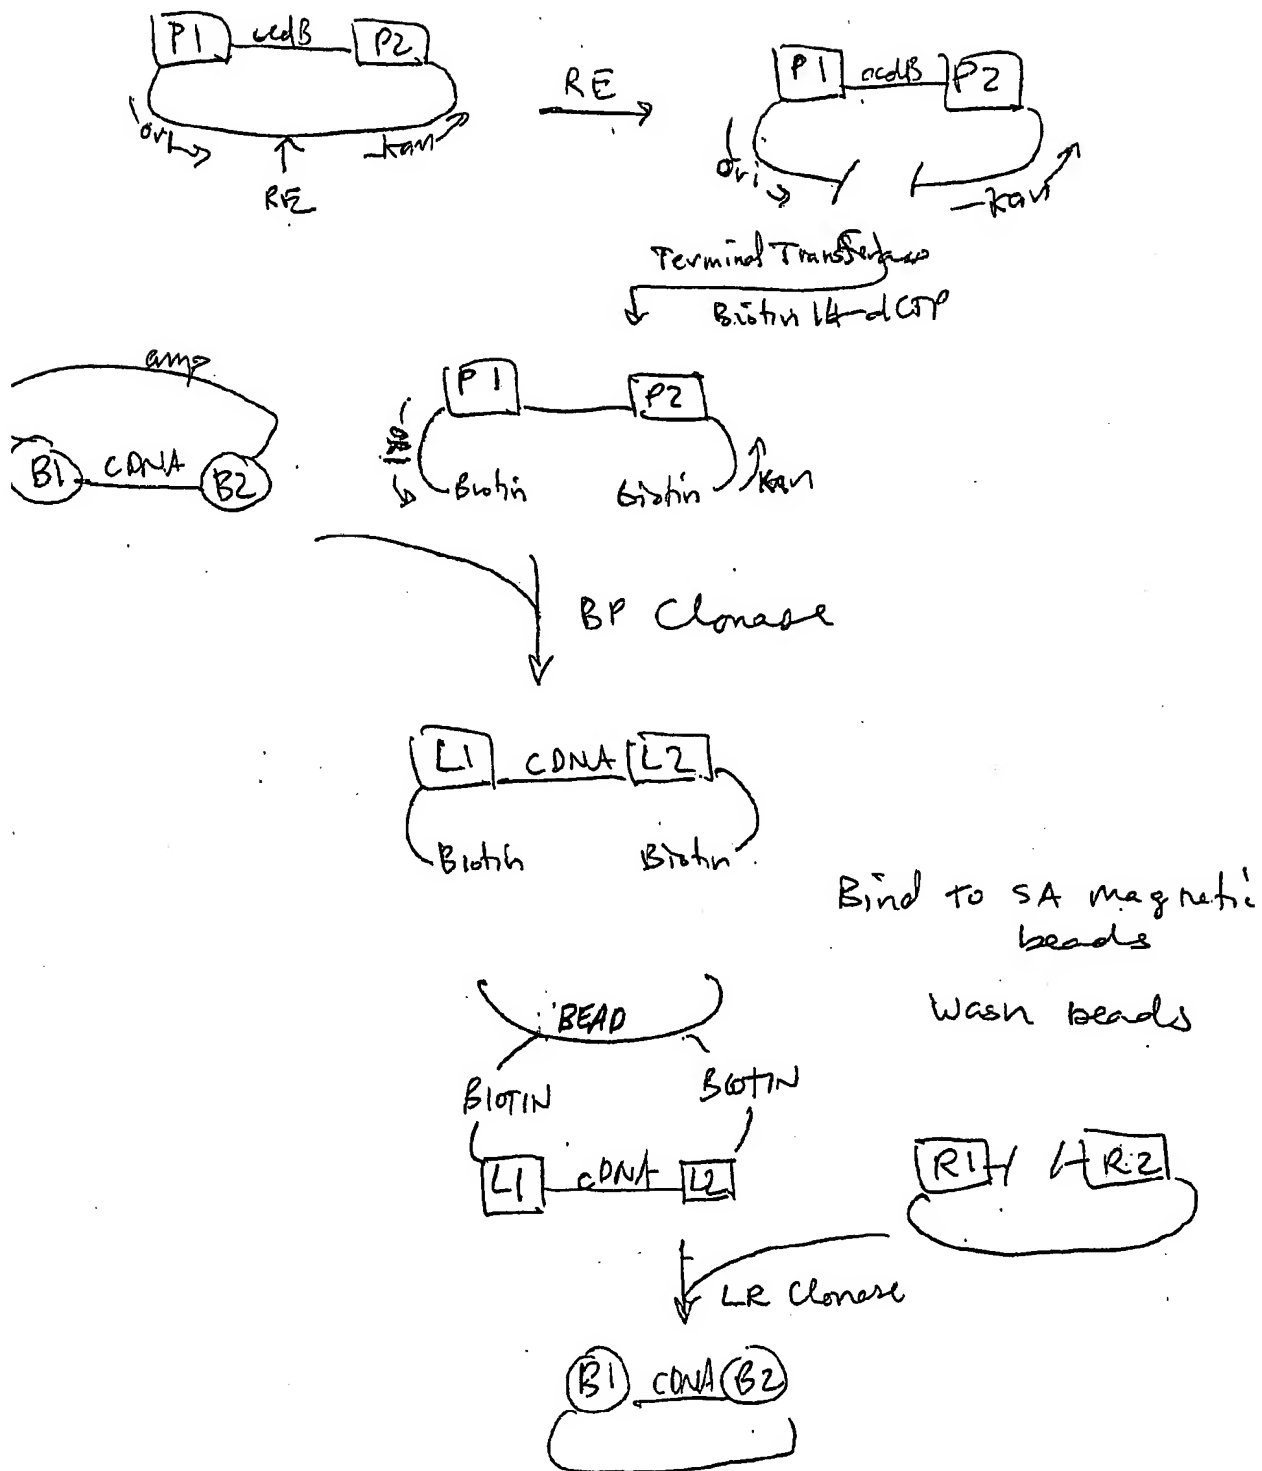 P1 ccdB P2
ori
kan
RE
RE
P1 ccdB P2
ori
kan
Terminal Transferase
Biotin 14-dCTP
amp
B1 cDNA B2
P1 P2
ORI
Biotin Biotin
kan
BP Clonase
L1 cDNA L2
Biotin Biotin
Bind to SA magnetic
beads
Wash beads
BEAD
BIOTIN BIOTIN
L1 cDNA L2
R1 R2
LR Clonase
B1 cDNA B2